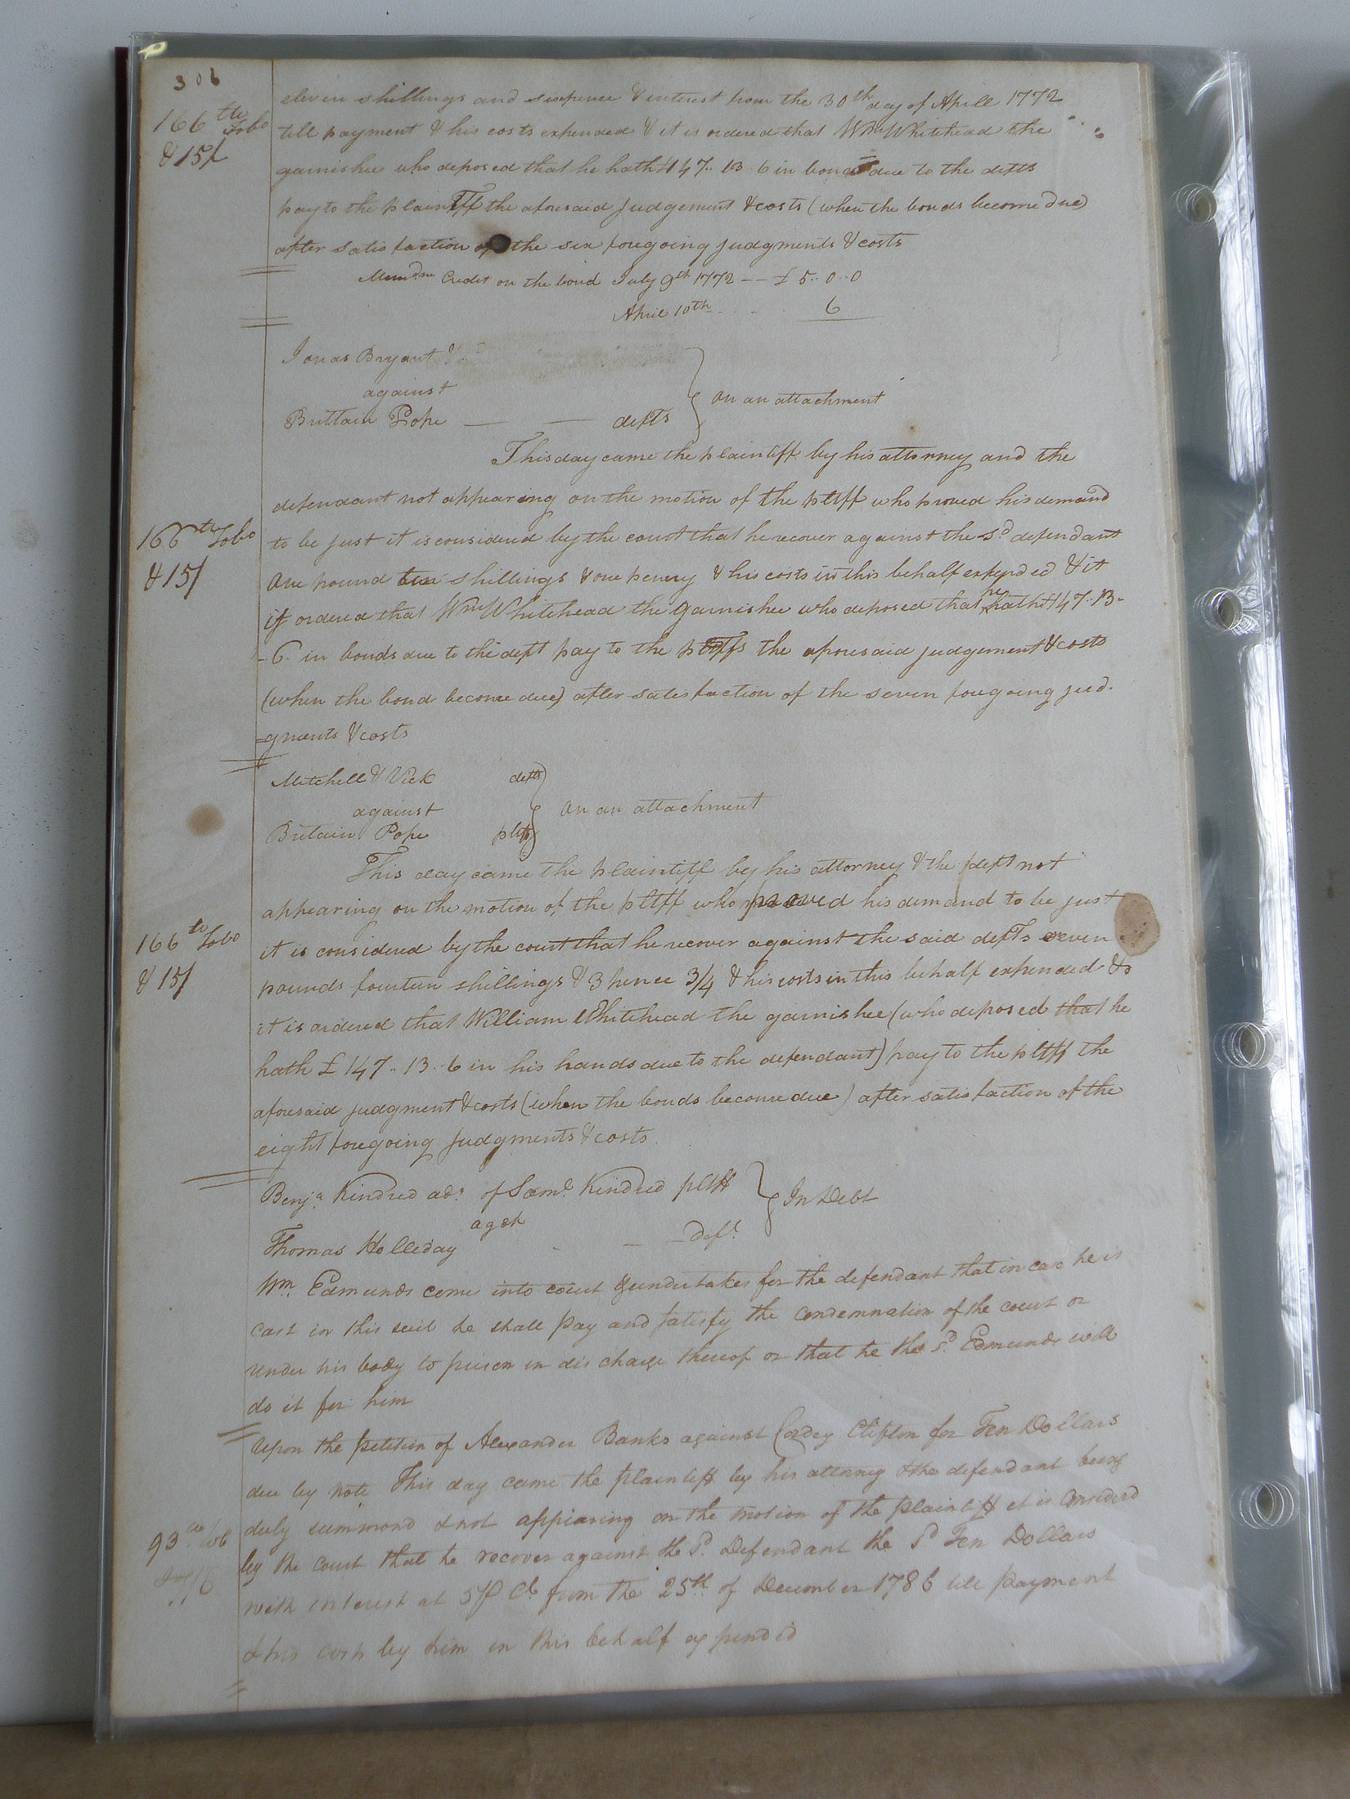 306
166 tts Tobo
& 15/
eleven shillings and sixpence & interest from the 30th day of Aprill 1772
till payment & his costs expended & it is ordered that Wm Whitehead the
garnishee who deposed that he hath 147.. 13 6 in bonds due to the defts
pay to the plaintiff the aforesaid judgement & costs (when the bonds become due)
after satisfaction of the six foregoing judgments & costs
Memdm Credit on the bond July 9th 1772 — £ 5.. 0.. 0
April 10th 6
Jonas Bryant
against
Brittain Pope — — defts
On an attachment
This day came the plaintiff by his attorney and the
defendant not appearing on the motion of the pltff who proved his demand
166 tts Tobo
& 15/
to be just it is considered by the court that he recover against the sd defendant
One pound shillings & one penny & his costs in this behalf expended & it
is ordered that Wm Whitehead the garnishee who deposed that he hath 147. 13-
- 6. in bonds due to the deft pay to the pltffs the aforesaid judgement & costs
(when the bond become due) after satisfaction of the seven foregoing jud-
-gments & costs
Mitchell & Vick defts
against
Britain Pope pltfs
On an attachment
This day came the plaintiff by his attorney & the deft not
appearing on the motion of the pltff who proved his demand to be just
166 tts Tobo
& 15/
it is considered by the court that he recover against the said defts seven
pounds fourteen shillings & 3 pence 3/4 & his costs in this behalf expended &
it is ordered that William Whitehead the garnishee (who deposed that he
hath £ 147.. 13.. 6 in his hands due to the defendant) pay to the pltff the
aforesaid judgment & costs (when the bonds become due) after satisfaction of the
eight foregoing judgments & costs
Benja Kindred adr of Saml Kindred pltff
agst
Thomas Holleday — Deft
In Debt
Wm. Edmunds come into court & undertakes for the defendant that in case he is
cast in this suit he shall pay and satisfy the condemnation of the court or
render his body to prison in discharge thereof or that he the sd Edmunds will
do it for him
Upon the petition of Alexander Banks against Cordey Clifton for Ten Dollars
due by note This day came the plaintiff by his attorney & the defendant being
duly summond & not appearing on the motion of the plaintiff it is Considerd
93
by the court that he recover against the sd. Defendant the sd Ten Dollars
with interest at 5 P Ct from the 25th of December 1786 till payment
& his costs by him in this behalf expended